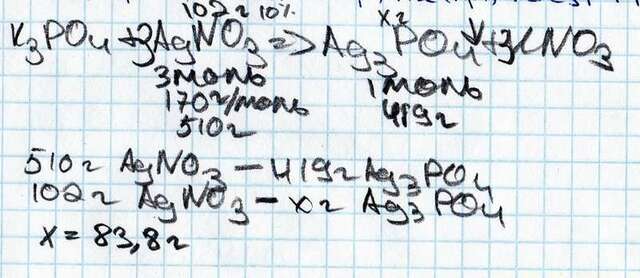 102г 10% xг
K3PO4 + 3AgNO3 => Ag3PO4↓ + 3KNO3
3моль 1моль
170г/моль 419г
510г
510г AgNO3 - 419г Ag3PO4
102г AgNO3 - xг Ag3PO4
x = 83,8г